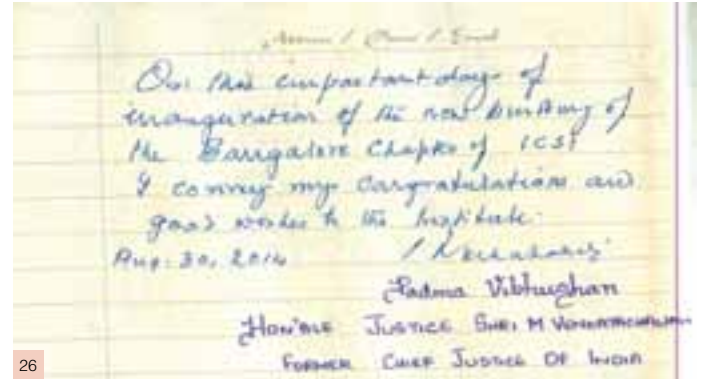 On this important day of
inauguration of the new building of
the Bangalore Chapter of ICSI
I convey my Congratulations and
good wishes to the Institute.
Aug. 30, 2014
Padma Vibhushan
HON'BLE JUSTICE SHRI M VENKATACHALIAH
FORMER CHIEF JUSTICE OF INDIA
26